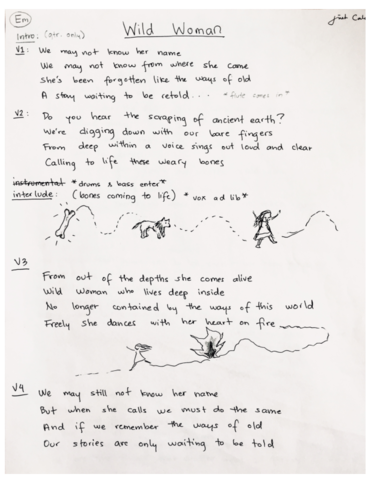 Em
Wild Woman
Intro: (gtr. only)
V1: We may not know her name
We may not know from where she came
She's been forgotten like the ways of old
A story waiting to be retold... *flute comes in*
V2: Do you hear the scraping of ancient earth?
We're digging down with our bare fingers
From deep within a voice sings out loud and clear
Calling to life these weary bones
instrumental *drums & bass enter*
interlude: (bones coming to life) *vox ad lib*
V3
From out of the depths she comes alive
Wild Woman who lives deep inside
No longer contained by the ways of this world
Freely she dances with her heart on fire
V4
We may still not know her name
But when she calls we must do the same
And if we remember the ways of old
Our stories are only waiting to be told